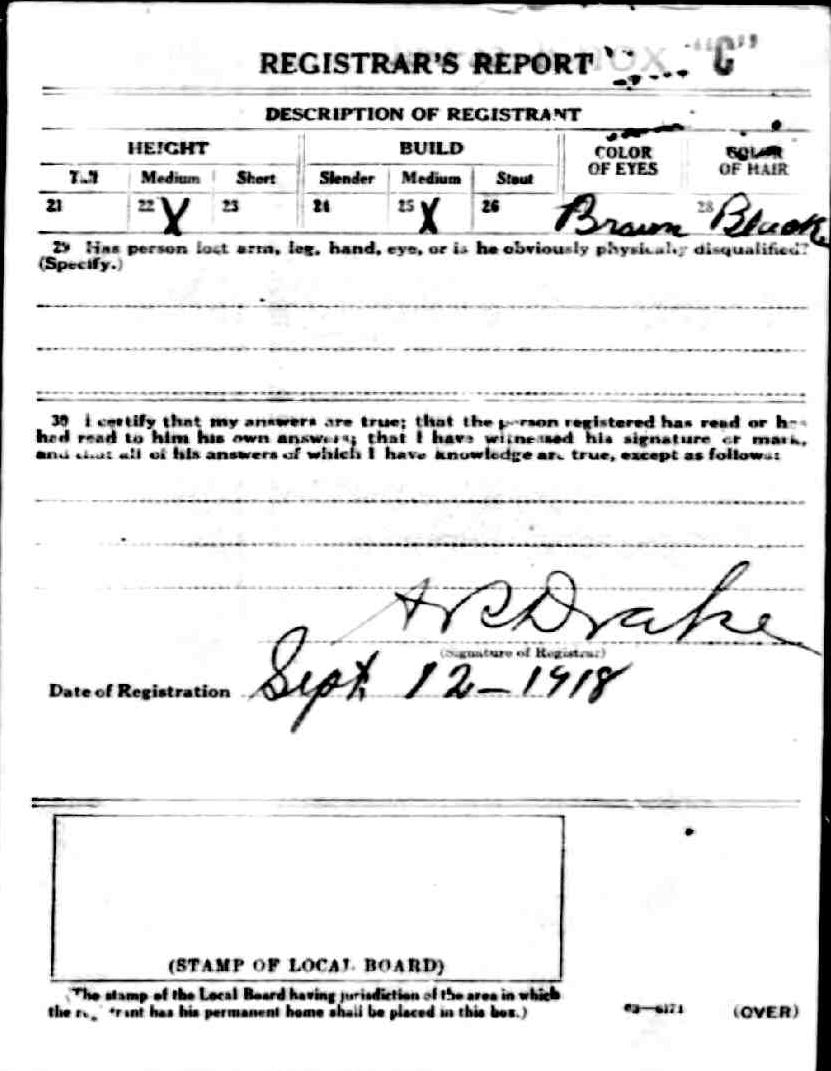 REGISTRAR'S REPORT "C"
DESCRIPTION OF REGISTRANT
HEIGHT BUILD COLOR OF EYES COLOR OF HAIR
Tall Medium Short Slender Medium Stout
21 22 X 23 24 25 X 26 Brown 28 Black
29 Has person lost arm, leg, hand, eye, or is he obviously physically disqualified?
(Specify.)
30 I certify that my answers are true; that the person registered has read or has
had read to him his own answers; that I have witnessed his signature or mark,
and that all of his answers of which I have knowledge are true, except as follows:
Drake
(Signature of Registrar)
Date of Registration Sept. 12-1918
(STAMP OF LOCAL BOARD)
(The stamp of the Local Board having jurisdiction of the area in which
the registrant has his permanent home shall be placed in this box.)
(OVER)